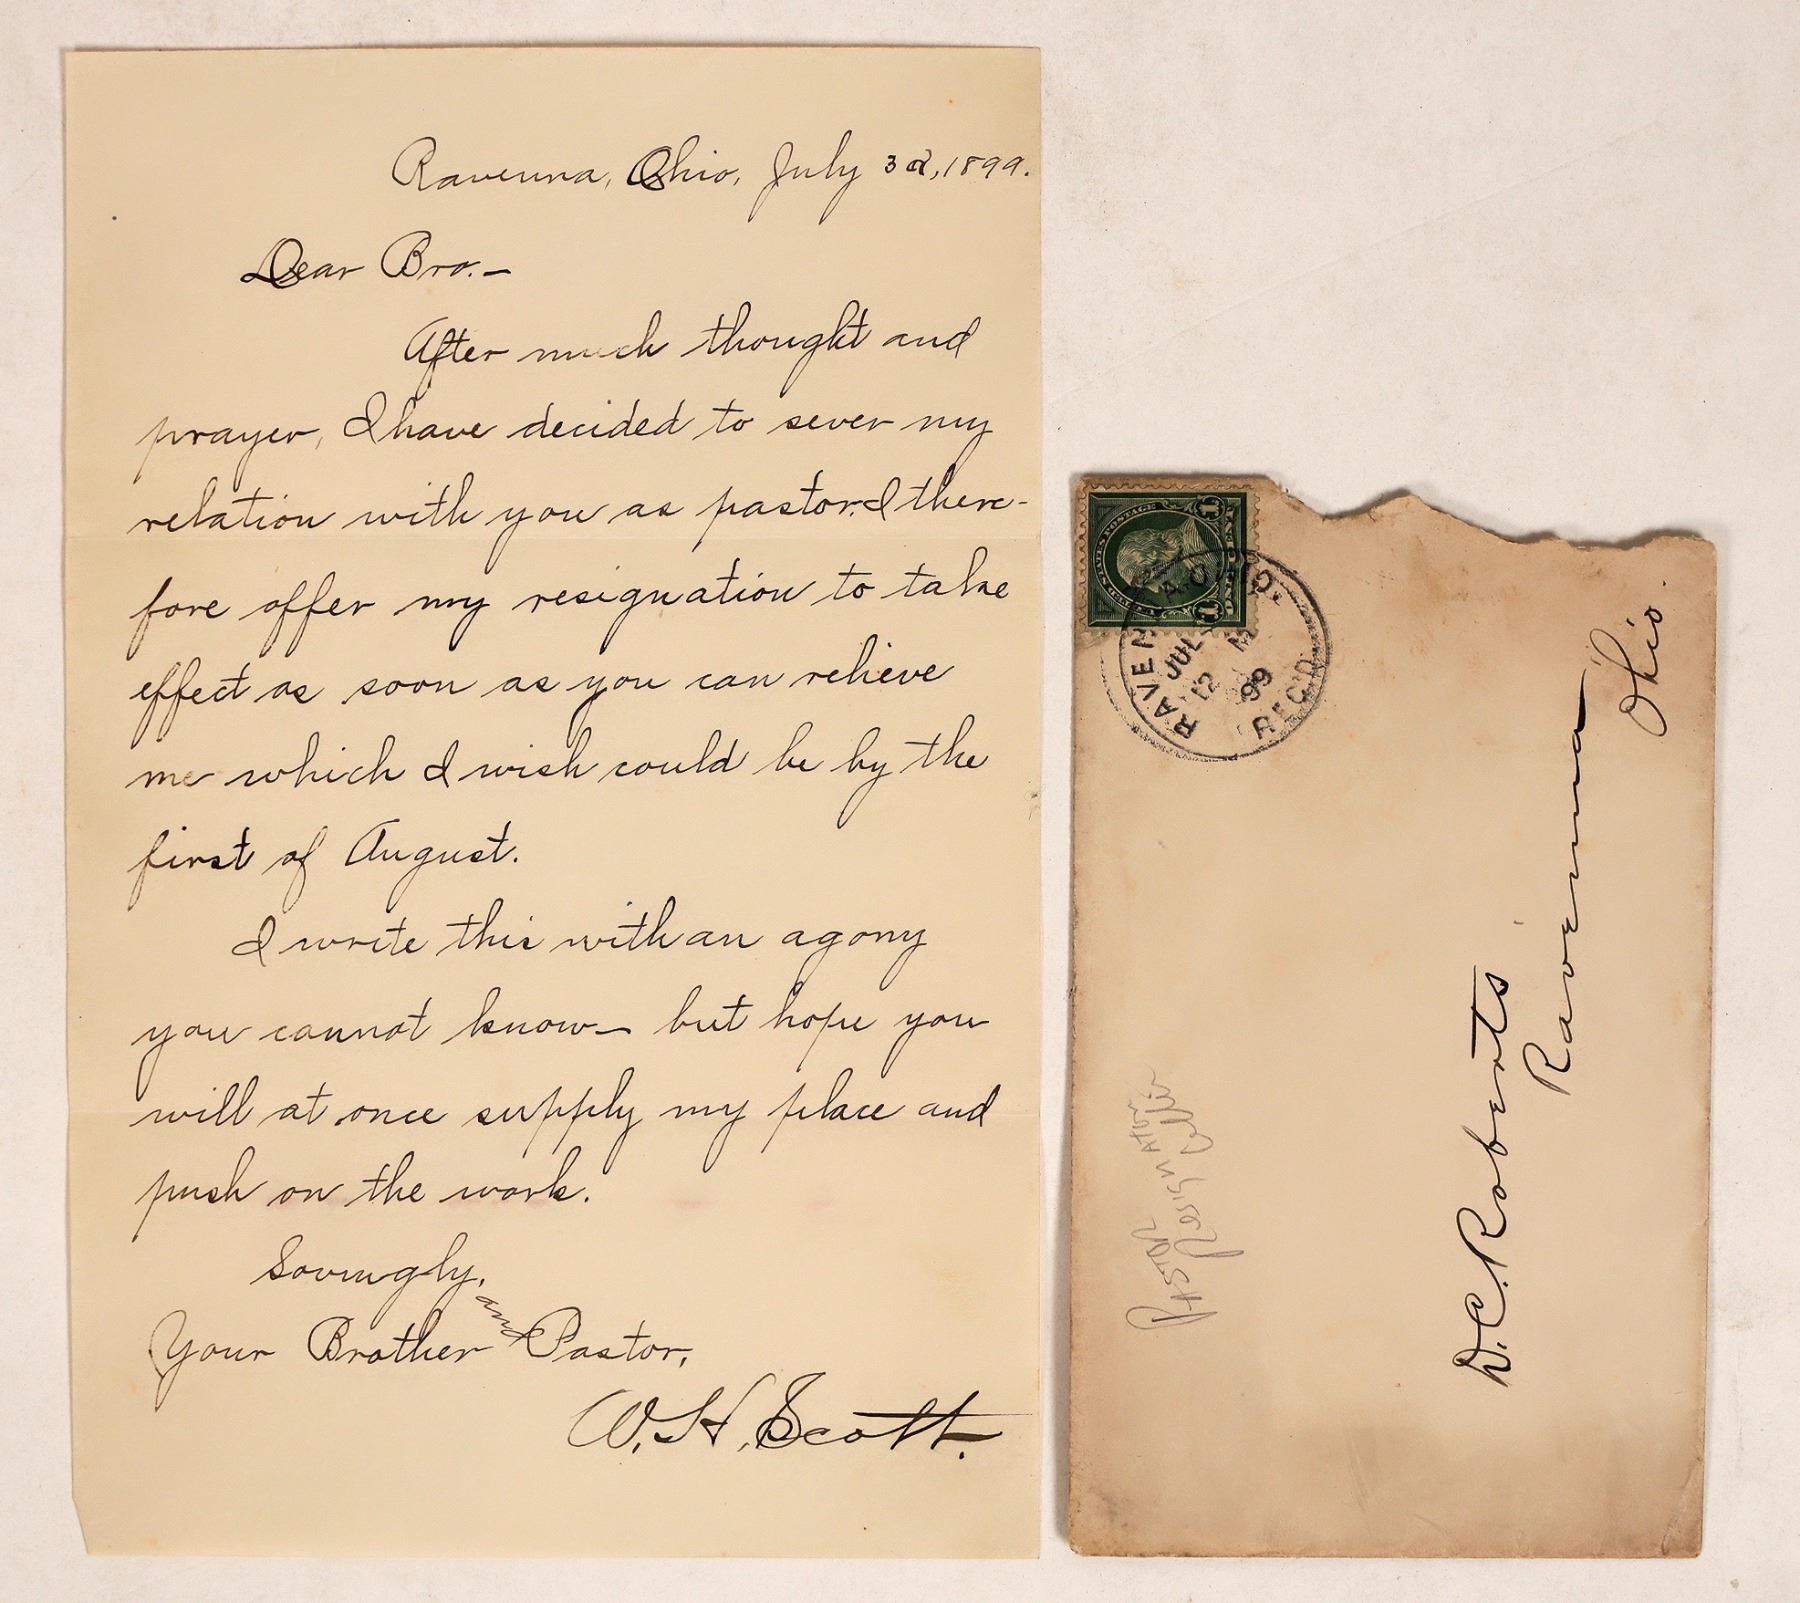 Ravenna, Ohio, July 3d, 1899.
Dear Bro.—
After much thought and
prayer, I have decided to sever my
relation with you as pastor. I there-
fore offer my resignation to take
effect as soon as you can relieve
me which I wish could be by the
first of August.
I write this with an agony
you cannot know — but hope you
will at once supply my place and
push on the work.
Lovingly,
Your Brother and Pastor,
W. H. Scott.
UNITED STATES POSTAGE
1 1
ONE CENT
RAVENNA, OHIO.
JUL
12 M
99
REC'D.
D. C. Roberts
Ravenna
Ohio.
Pastor
Resignation